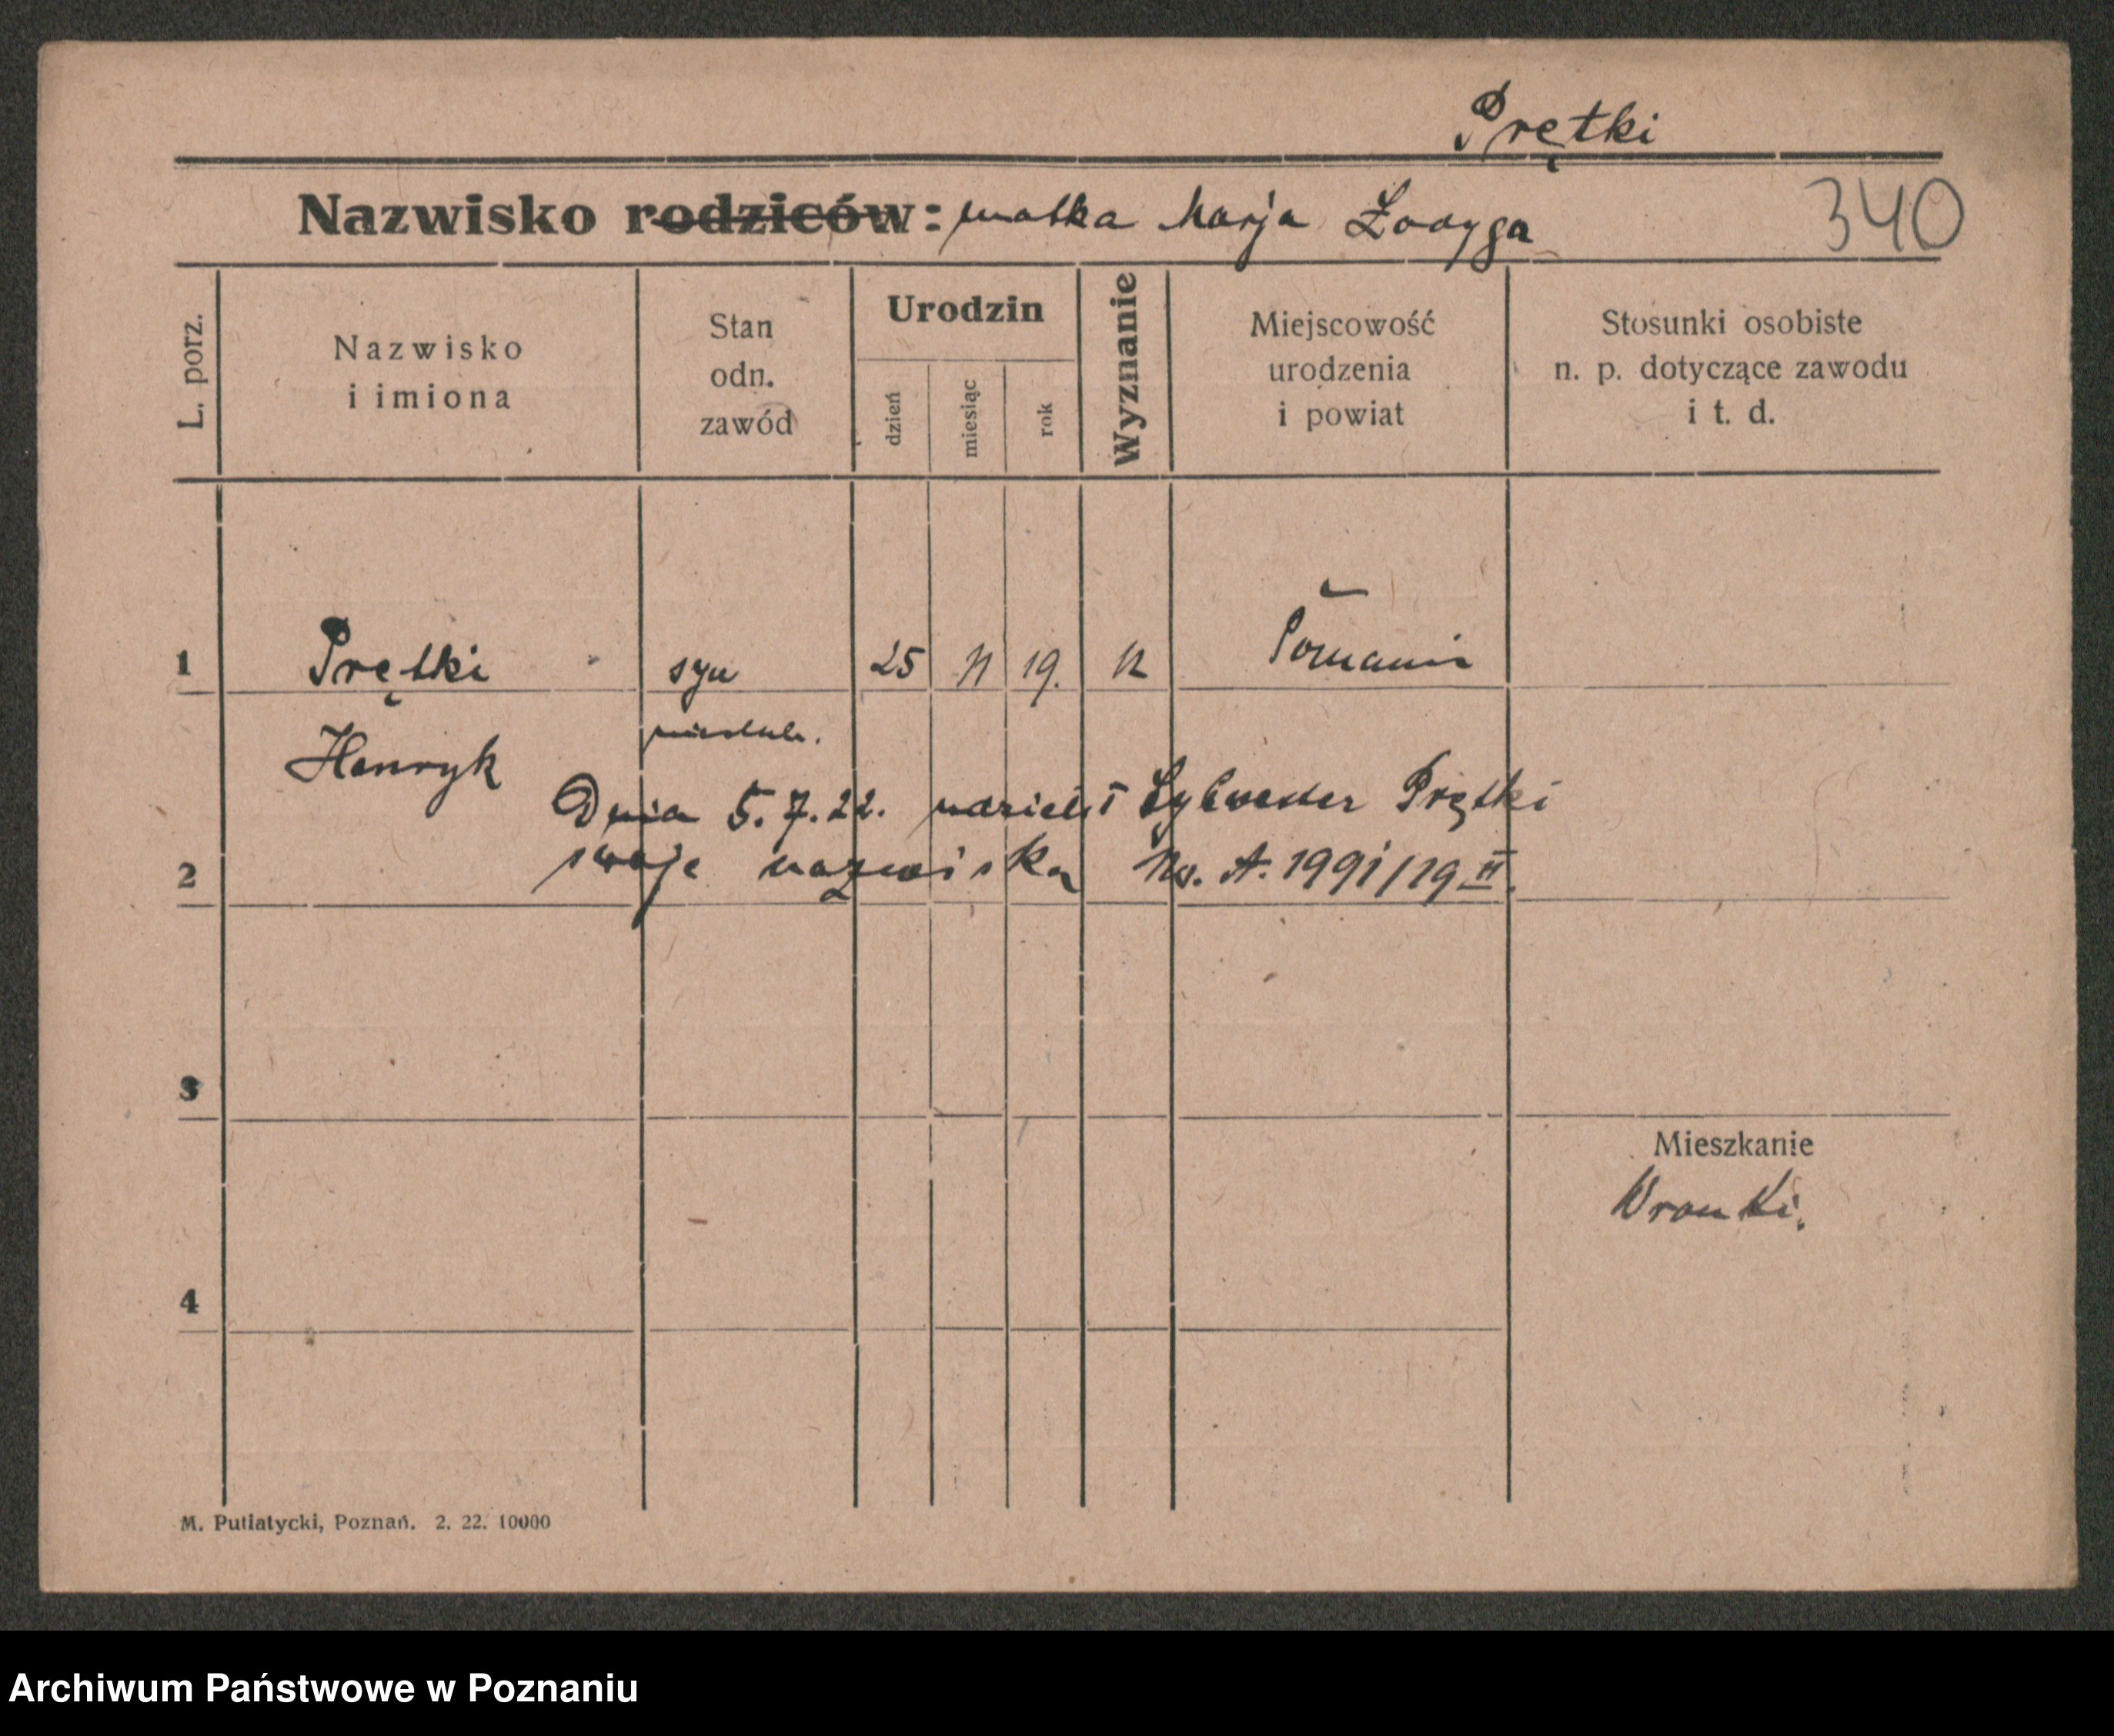 Prętki
Nazwisko rodziców: matka Marja Łodyga
340
L. porz.
Nazwisko
i imiona
Stan
odn.
zawód
Urodzin
dzień
miesiąc
rok
Wyznanie
Miejscowość
urodzenia
i powiat
Stosunki osobiste
n. p. dotyczące zawodu
i t. d.
1 Prętki syn 25 11 19. K Poznaniu
Henryk nieślub.
Dnia 5.7.22. udzielił Sylwester Prętki
2 swoje nazwiska A. 1991/19 II.
3
Mieszkanie
Wronki.
4
M. Putiatycki, Poznań. 2. 22. 10000
Archiwum Państwowe w Poznaniu